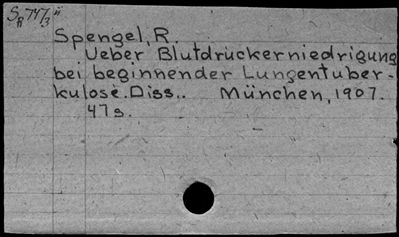 Spengel, R.
Ueber Blutdruckerniedrigung
bei beginnender Lungentuber-
kulose. Diss.. München, 1907.
47s.